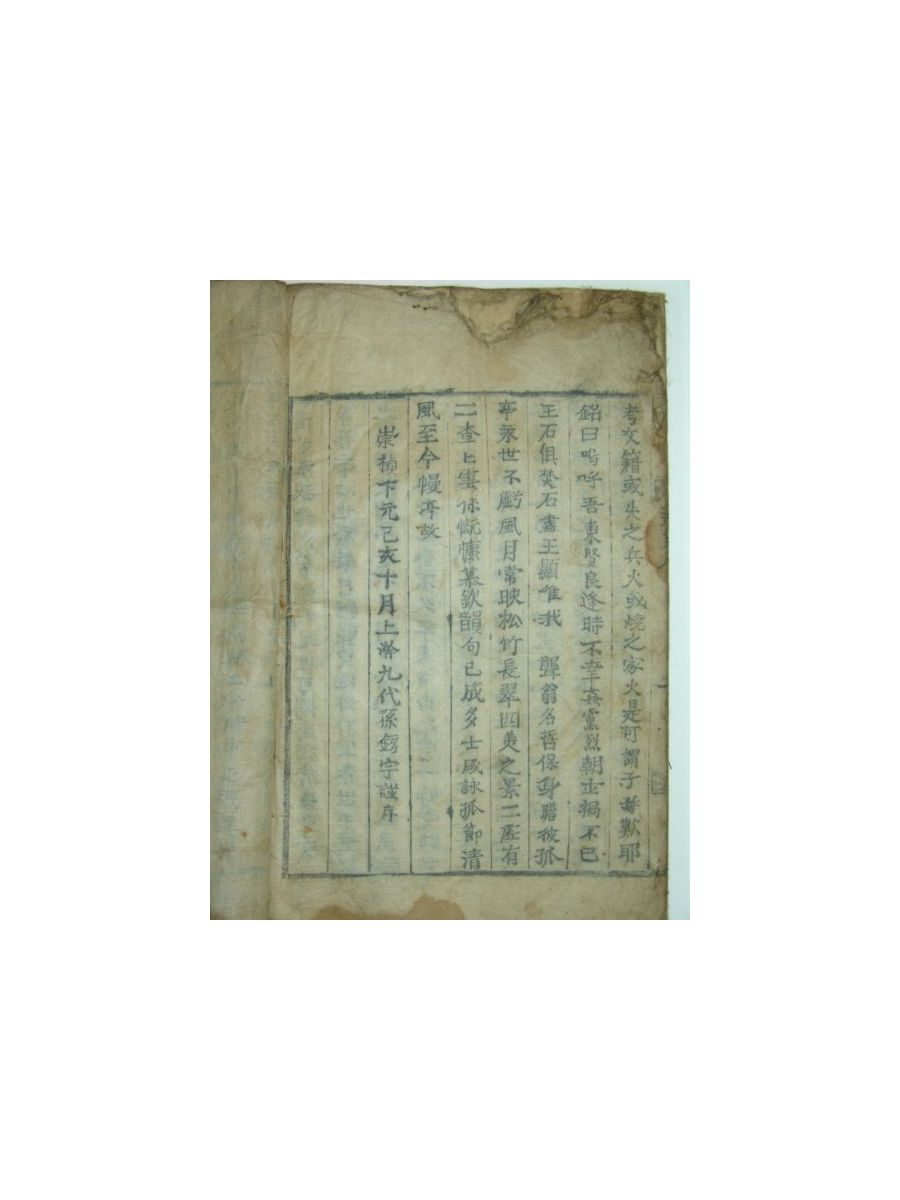 考文籍或失之兵火或燒之家火是可謂子孝歎耶
銘曰嗚呼吾東賢良逢時不幸姦黨烈朝士禍不已
玉石俱焚石盡玉顯唯我 聾翁名哲保身瞻彼孤
亭永世不虧風月常映松竹長翠四美之景二匡有
二查上雲徐慨慷慕欽韻句已成多士咸詠孤節清
風至今幔亭故
崇禎下元己亥十月上澣九代孫 字謹序